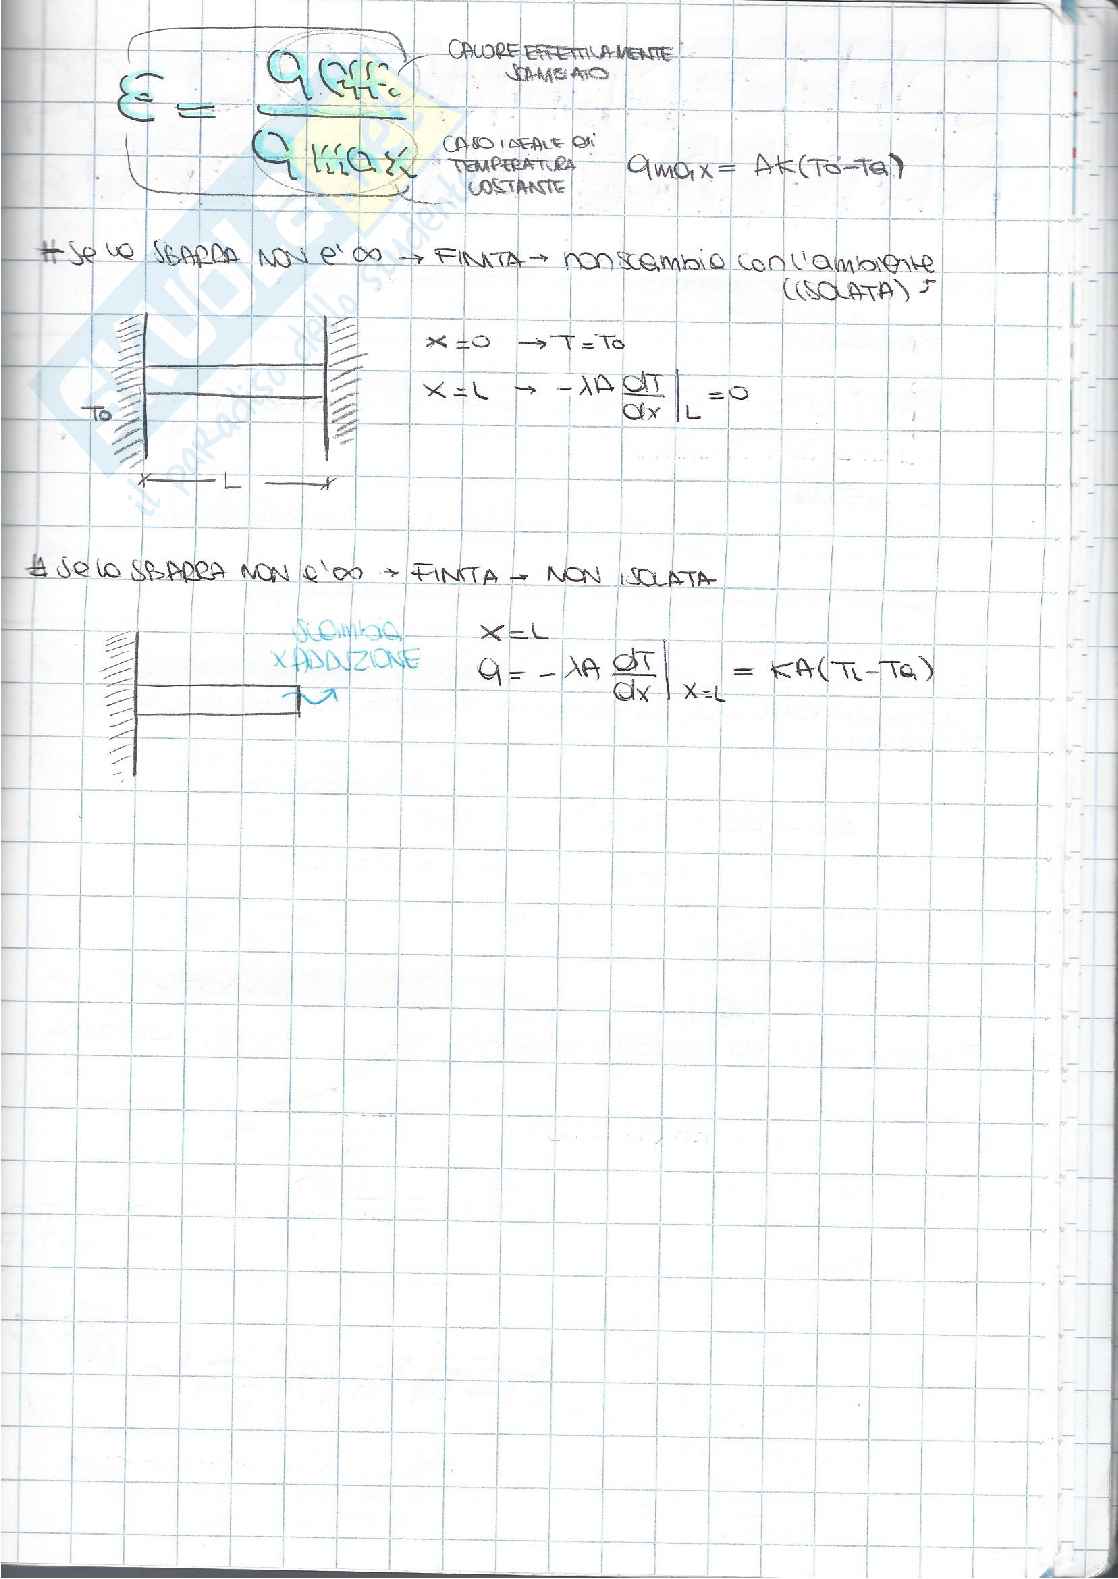 ε = q eff. / q max
CALORE EFFETTIVAMENTE
SCAMBIATO
CASO IDEALE di
TEMPERATURA
COSTANTE
qmax = AK(To-Ta)
# Se la SBARRA NON e' ∞ → FINITA → non scambia con l'ambiente
(ISOLATA)
x=0 → T=To
x=L → -λA dT/dx |L = 0
To
L
# Se la SBARRA NON e' ∞ → FINITA → NON ISOLATA
scambia
x ADDUZIONE
x=L
q = -λA dT/dx |x=L = KA(TL-Ta)
il paradiso dello studente